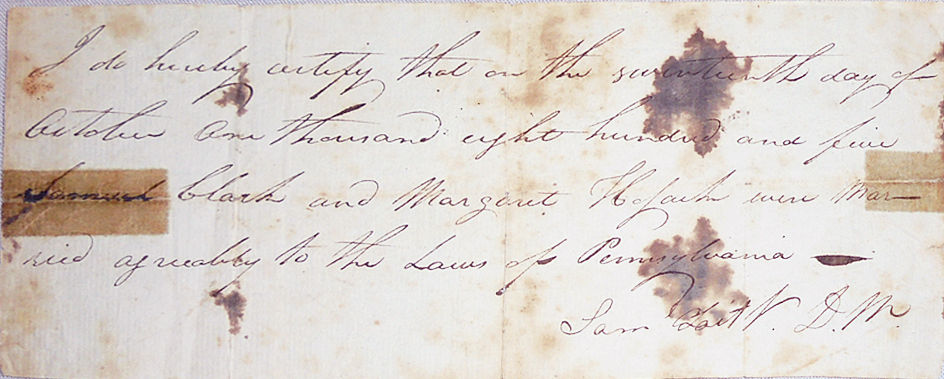 I do hereby certify that on the seventeenth day of
October One thousand eight hundred and five
Samuel Clark and Margaret were Mar-
ried agreeably to the Laws of Pennsylvania
Sam V. D. M.